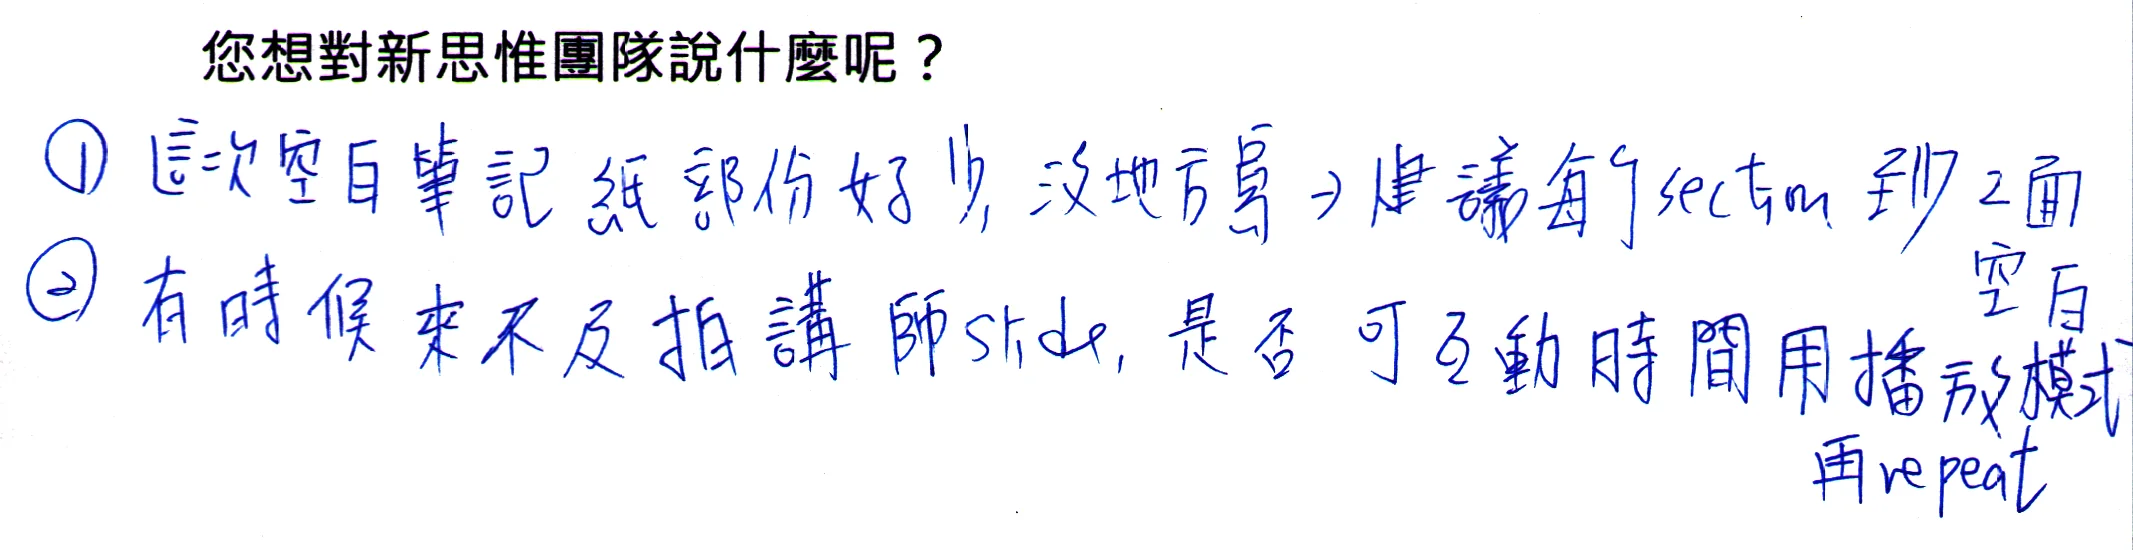 您想對新思惟團隊說什麼呢？
① 這次空白筆記紙部份好少, 沒地方寫→建議每個section 到2面
空白
② 有時候來不及拍講師slide, 是否可互動時間用播放模式
再repeat